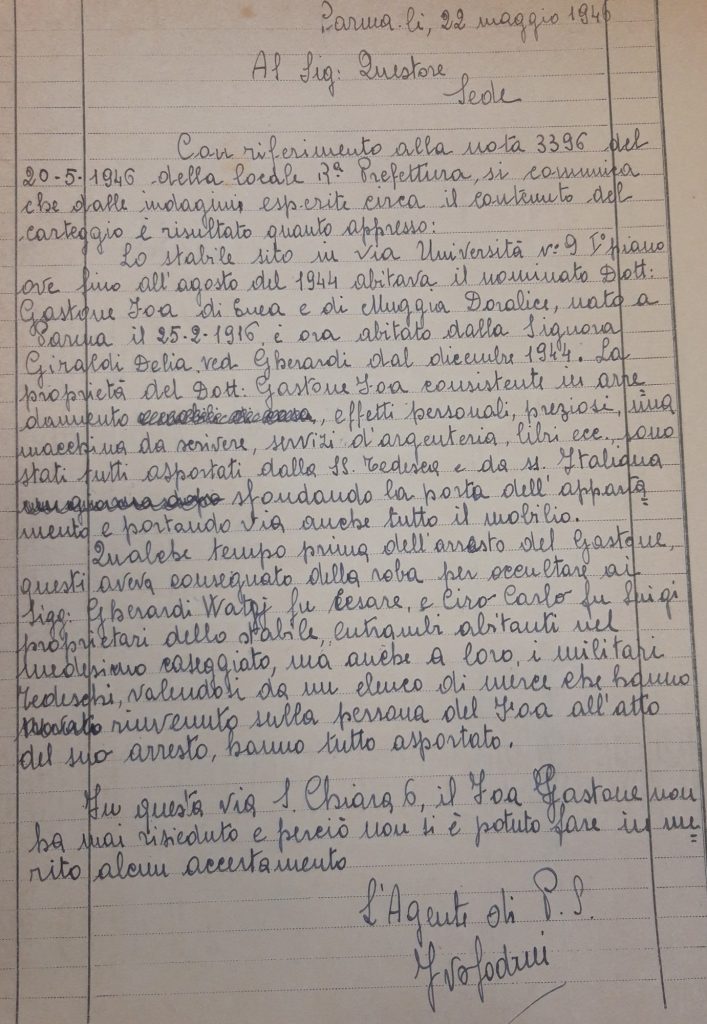 Parma li, 22 maggio 1946
Al Sig: Questore
Sede
Con riferimento alla nota 3396 del
20-5-1946 della locale Rª Prefettura, si comunica
che dalle indagini esperite circa il contenuto del
carteggio è risultato quanto appresso:
Lo stabile sito in via Università n:9 I° piano
ove fino all'agosto del 1944 abitava il nominato Dott:
Gastone Foa di Enea e di Muggia Doralice, nato a
Parma il 25-2-1916, è ora abitato dalla Signora
Giraldi Delia ved Gherardi dal dicembre 1944. La
proprietà del Dott: Gastone Foa consistente in arre
damento, effetti personali, preziosi, una
macchina da scrivere, servizi d'argenteria, libri ecc., sono
stati tutti asportati dalla SS. Tedesca e da SS. Italiana
sfondando la porta dell'apparta=
mento e portando via anche tutto il mobilio.
Qualche tempo prima dell'arresto del Gastone,
questi aveva consegnato della roba per occultare ai
Sigg: Gherardi fu Cesare, e Ciro Carlo fu Luigi
proprietari dello stabile, entrambi abitanti nel
medesimo caseggiato, ma anche a loro, i militari
Tedeschi, valendosi da un elenco di merce che hanno
rinvenuto sulla persona del Foa all'atto
del suo arresto, hanno tutto asportato.
In questa via S. Chiara 6, il Foa Gastone non
ha mai risieduto e perciò non si è potuto fare in me=
rito alcun accertamento
L'Agente di P.S.